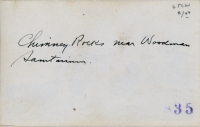 Chimney Rocks near Woodman
Sanitarium.
35